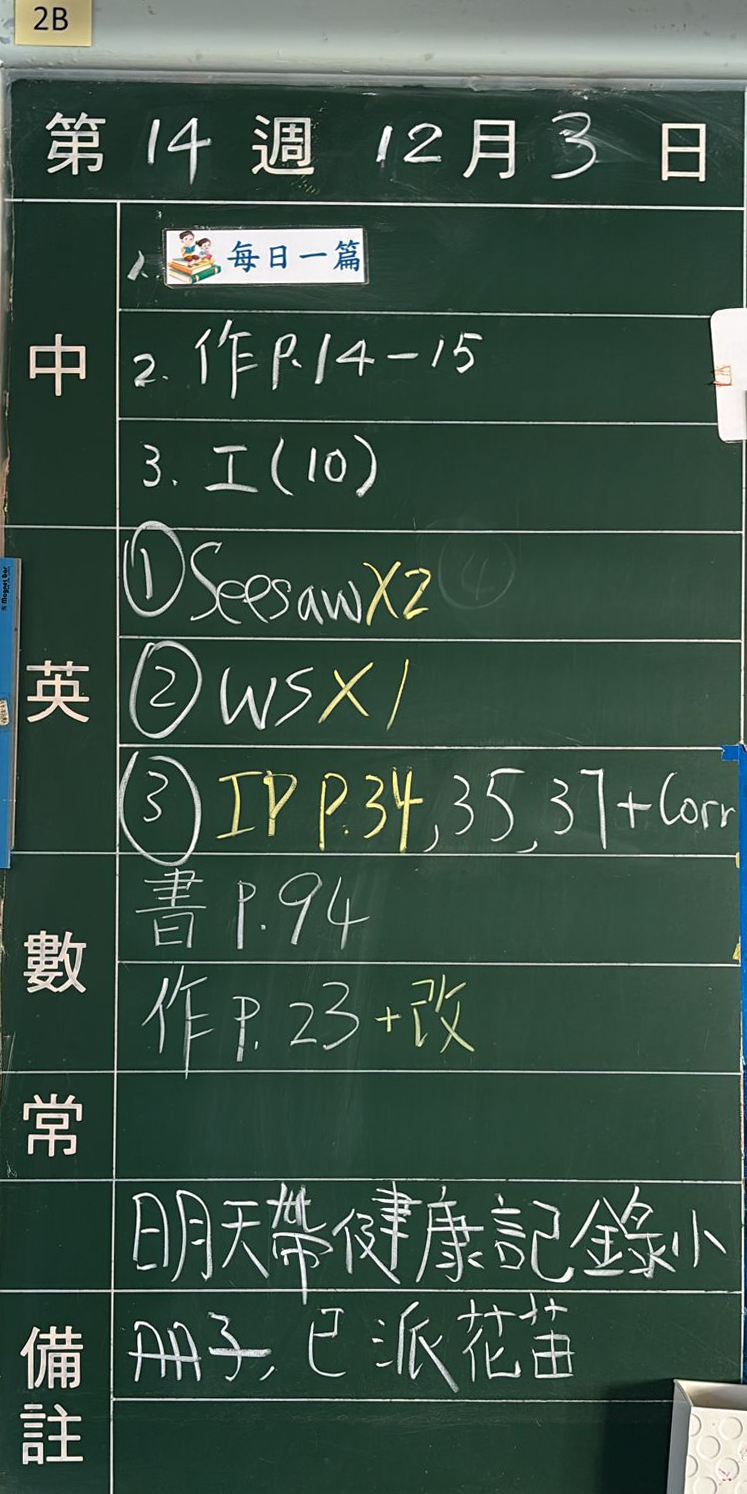 2B
第 14 週 12月3日
中
1. 每日一篇
2. 作 P.14-15
3. 工(10)
英
① Seesaw X2 ④
② WS X1
③ IP P.34, 35, 37 + Corr
數
書 P.94
作 P. 23 + 改
常
明天帶健康記錄小
冊子, 已派花苗
備註